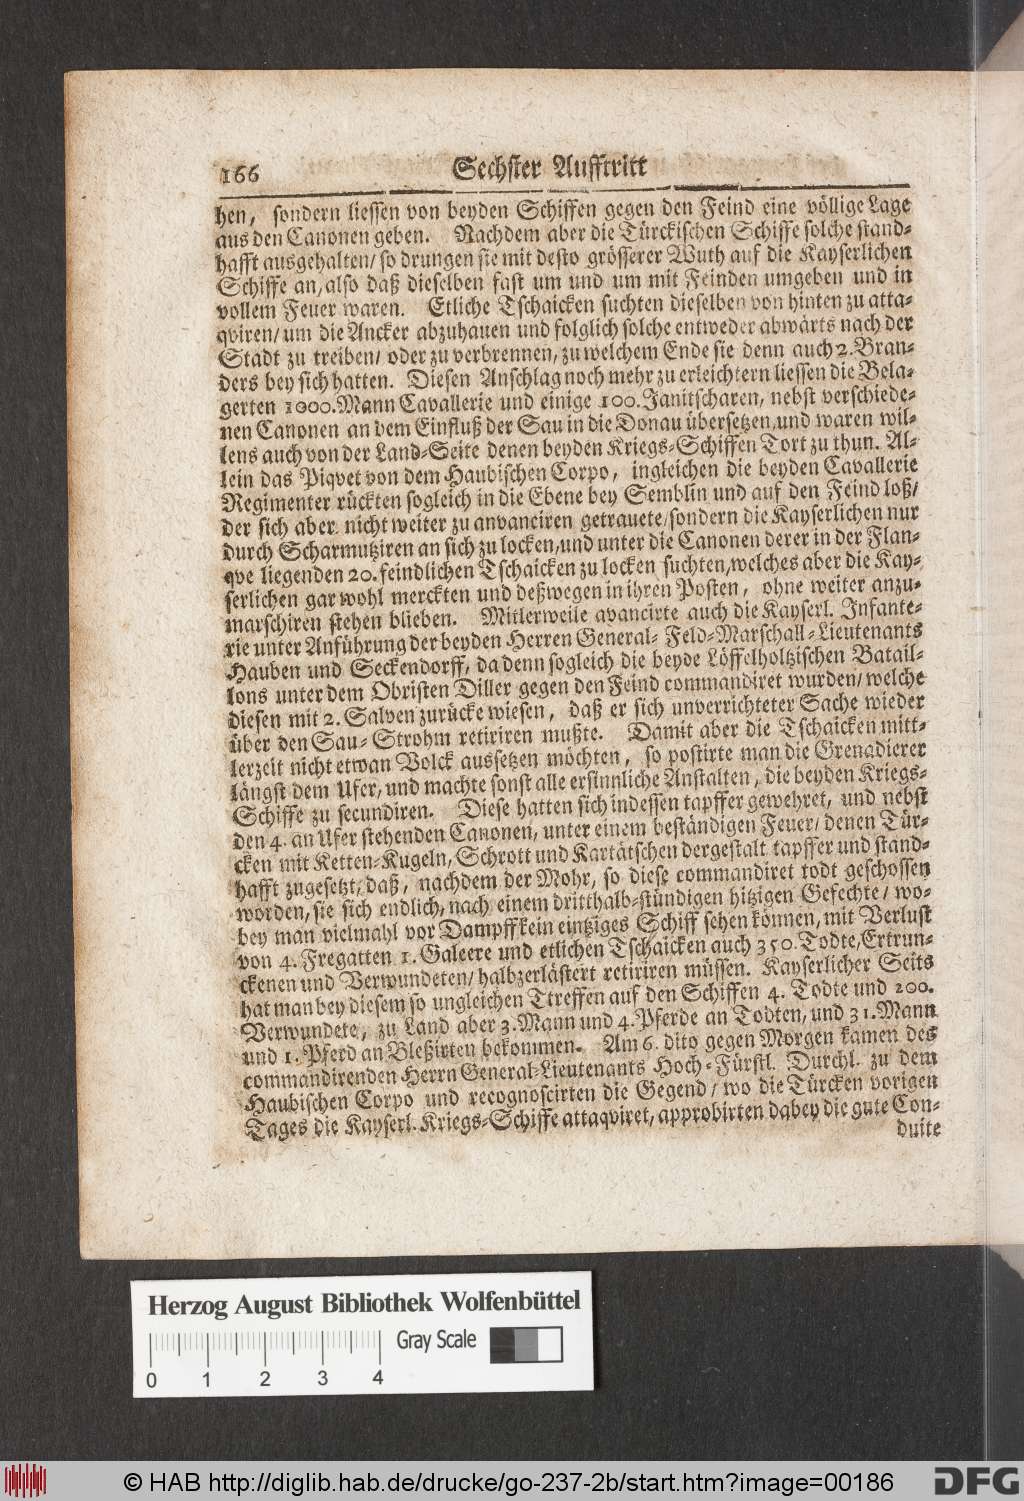 166 Sechster Aufftritt
hen, sondern liessen von beyden Schiffen gegen den Feind eine völlige Lage
aus den Canonen geben. Nachdem aber die Türckischen Schiffe solche stand-
hafft ausgehalten/ so drungen sie mit desto grösserer Wuth auf die Kayserlichen
Schiffe an, also daß dieselben fast um und um mit Feinden umgeben und in
vollem Feuer waren. Etliche Tschaicken suchten dieselben von hinten zu atta-
qviren/ um die Ancker abzuhauen und folglich solche entweder abwärts nach der
Stadt zu treiben/ oder zu verbrennen, zu welchem Ende sie denn auch 2. Bran-
ders bey sich hatten. Diesen Anschlag noch mehr zu erleichtern liessen die Bela-
gerten 1000. Mann Cavallerie und einige 100. Janitscharen, nebst verschiede-
nen Canonen an dem Einfluß der Sau in die Donau übersetzen, und waren wil-
lens auch von der Land-Seite denen beyden Kriegs-Schiffen Tort zu thun. Al-
lein das Piqvet von dem Haubischen Corpo, ingleichen die beyden Cavallerie
Regimenter rückten sogleich in die Ebene bey Semblin und auf den Feind loß/
der sich aber nicht weiter zu anvanciren getrauete/ sondern die Kayserlichen nur
durch Scharmutziren an sich zu locken, und unter die Canonen derer in der Flan-
qve liegenden 20. feindlichen Tschaicken zu locken suchten, welches aber die Kay-
serlichen gar wohl merckten und deßwegen in ihren Posten, ohne weiter anzu-
marschiren stehen blieben. Mitlerweile avancirte auch die Kayserl. Infante-
rie unter Anführung der beyden Herren General- Feld-Marschall-Lieutenants
Hauben und Seckendorff, da denn sogleich die beyde Löffelholtzischen Batail-
lons unter dem Obristen Diller gegen den Feind commandiret wurden/ welche
diesen mit 2. Salven zurücke wiesen, daß er sich unverrichteter Sache wieder
über den Sau- Strohm retiriren mußte. Damit aber die Tschaicken mitt-
lerzeit nicht etwan Volck aussetzen möchten, so postirte man die Grenadierer
längst dem Ufer, und machte sonst alle ersinnliche Anstalten, die beyden Kriegs-
Schiffe zu secundiren. Diese hatten sich indessen tapffer gewehret, und nebst
den 4. an Ufer stehenden Canonen, unter einem beständigen Feuer/ denen Tür-
cken mit Ketten-Kugeln, Schrott und Kartätschen dergestalt tapffer und stand-
hafft zugesetzt, daß, nachdem der Mohr, so diese commandiret todt geschossen
worden, sie sich endlich, nach einem dritthalb-stündigen hitzigen Gefechte/ wo-
bey man vielmahl vor Dampff kein eintziges Schiff sehen können, mit Verlust
von 4. Fregatten 1. Galeere und etlichen Tschaicken auch 350. Todte, Ertrun-
ckenen und Verwundeten/ halbzerlästert retiriren müssen. Kayserlicher Seits
hat man bey diesem so ungleichen Ttreffen auf den Schiffen 4. Todte und 200.
Verwundete, zu Land aber 3. Mann und 4. Pferde an Todten, und 31. Mann
und 1. Pferd an Bleßirten bekommen. Am 6. dito gegen Morgen kamen des
commandirenden Herrn General-Lieutenants Hoch-Fürstl. Durchl. zu dem
Haubischen Corpo und recognoscirten die Gegend/ wo die Türcken vorigen
Tages die Kayserl. Kriegs-Schiffe attaqviret, approbirten dabey die gute Con-
duite
Herzog August Bibliothek Wolfenbüttel
Gray Scale
0 1 2 3 4
© HAB http://diglib.hab.de/drucke/go-237-2b/start.htm?image=00186
DFG